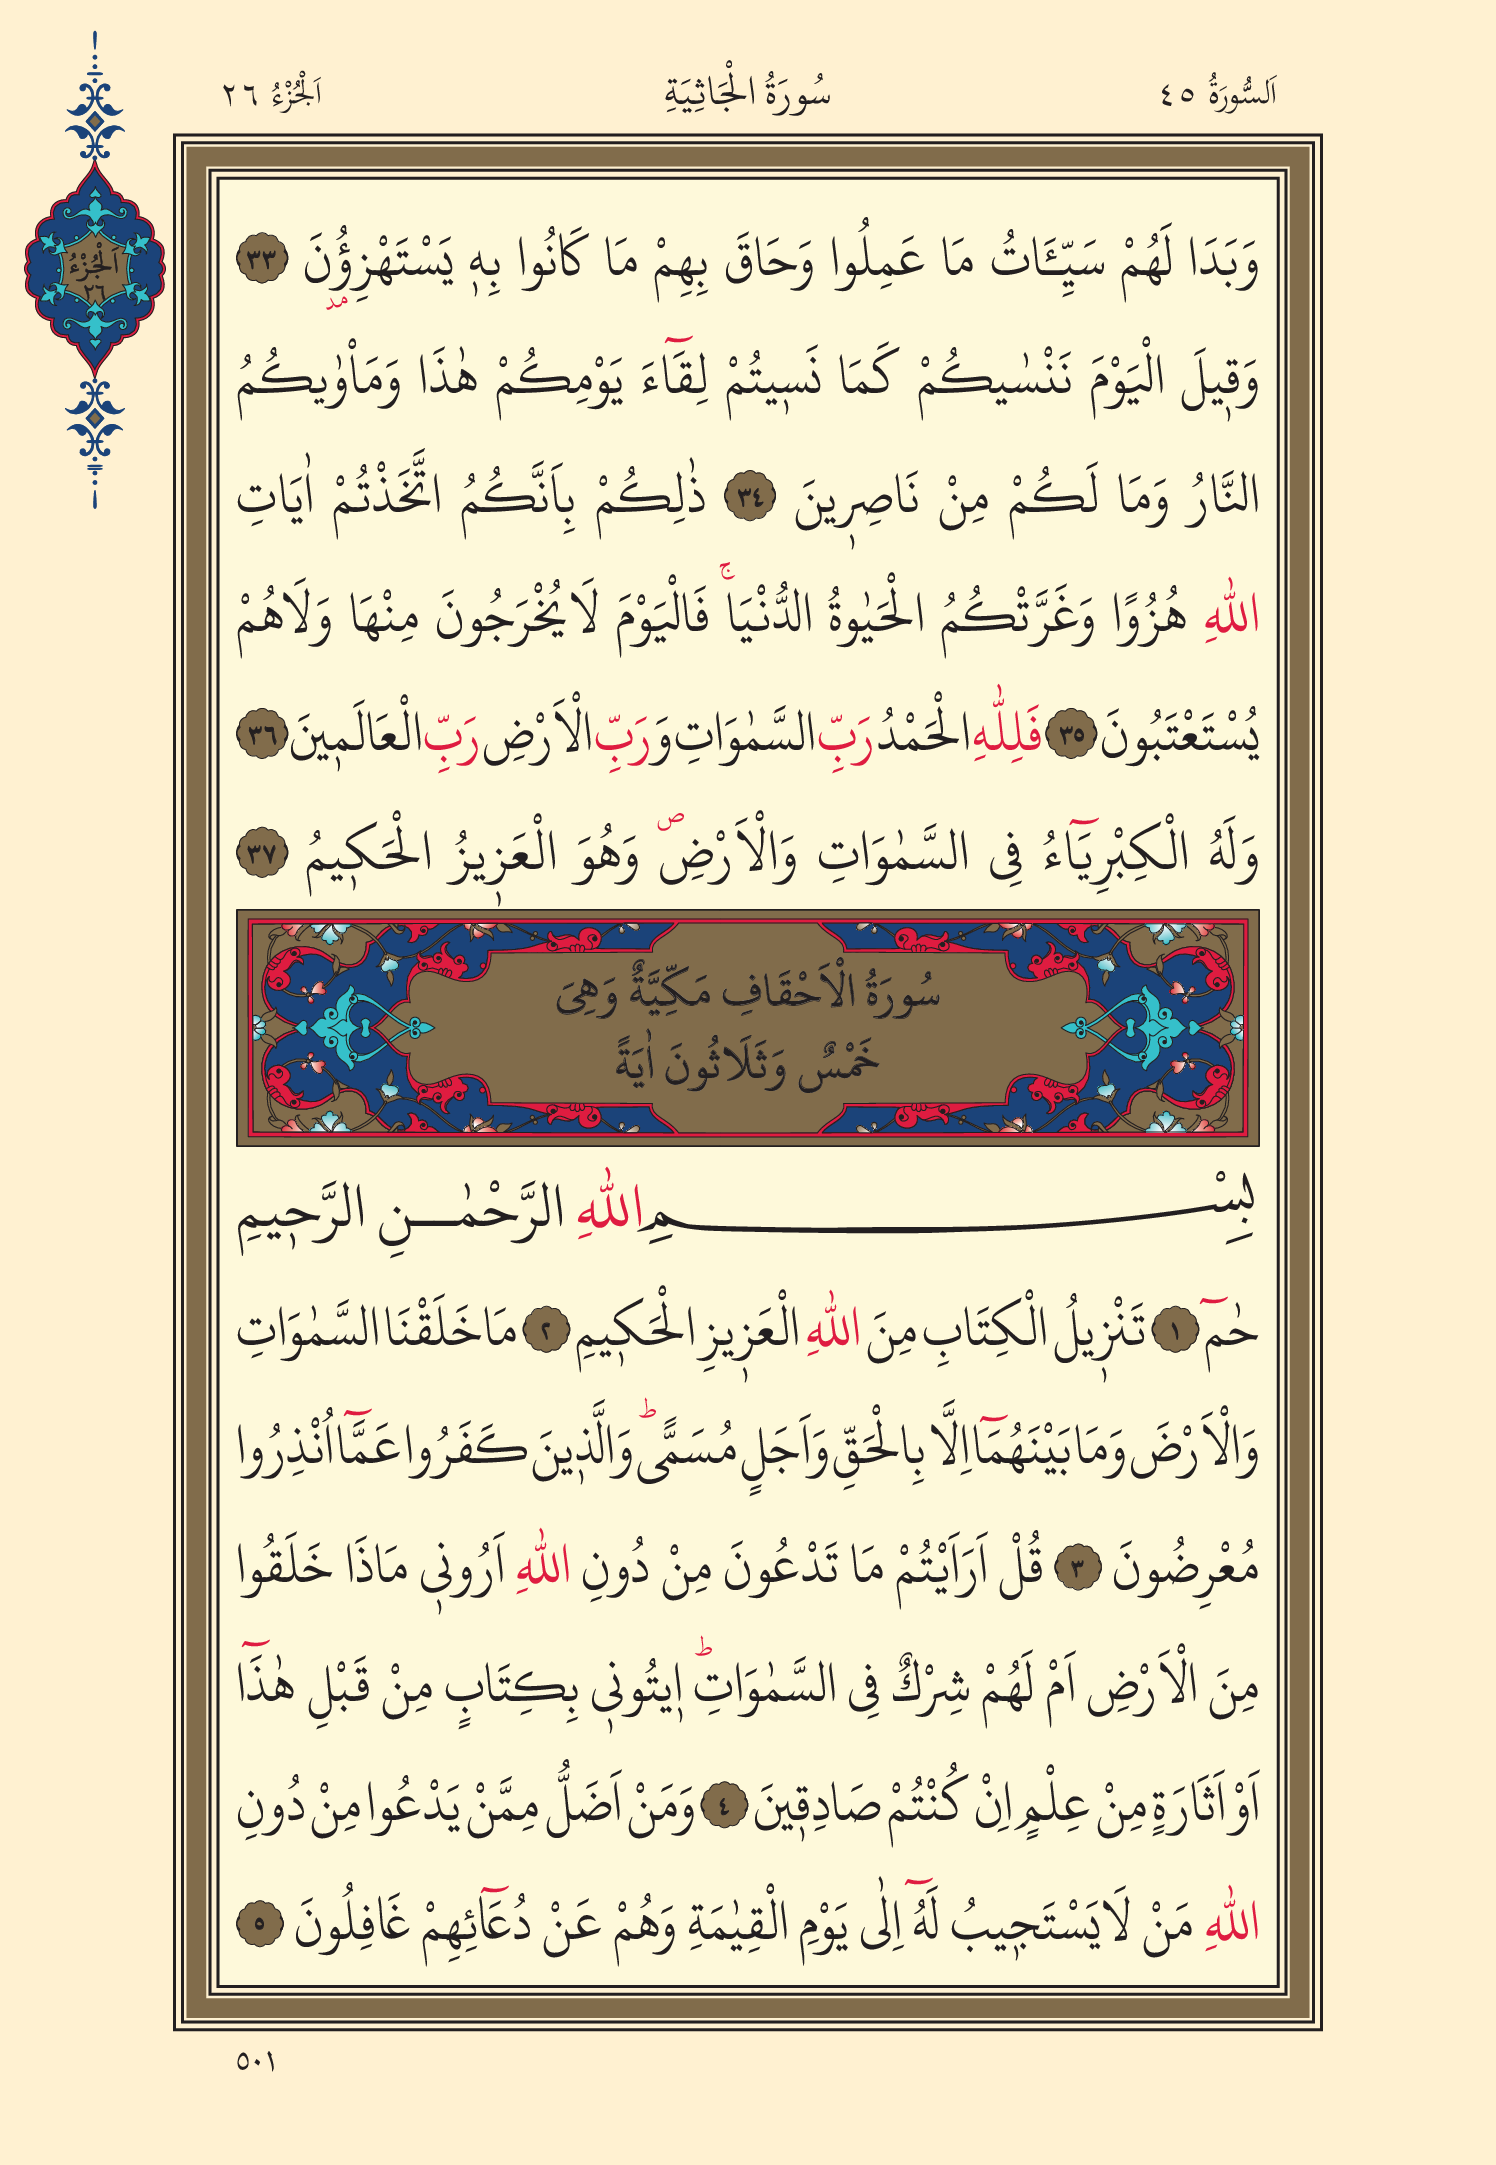 اَلسُّورَةُ ٤٥
سُورَةُ الْجَاثِيَةِ
اَلْجُزْءُ ٢٦
اَلْجُزْءُ
٢٦
وَبَدَا لَهُمْ سَيِّـَٔاتُ مَا عَمِلُوا وَحَاقَ بِهِمْ مَا كَانُوا بِهٖ يَسْتَهْزِؤُ۫نَ ٣٣
مد
وَقٖيلَ الْيَوْمَ نَنْسٰيكُمْ كَمَا نَسٖيتُمْ لِقَٓاءَ يَوْمِكُمْ هٰذَا وَمَأْوٰيكُمُ
النَّارُ وَمَا لَكُمْ مِنْ نَاصِرٖينَ ٣٤ ذٰلِكُمْ بِاَنَّكُمُ اتَّخَذْتُمْ اٰيَاتِ
اللّٰهِ هُزُوًا وَغَرَّتْكُمُ الْحَيٰوةُ الدُّنْيَاۚ فَالْيَوْمَ لَا يُخْرَجُونَ مِنْهَا وَلَاهُمْ
يُسْتَعْتَبُونَ ٣٥ فَلِلّٰهِ الْحَمْدُ رَبِّ السَّمٰوَاتِ وَرَبِّ الْاَرْضِ رَبِّ الْعَالَمٖينَ ٣٦
وَلَهُ الْكِبْرِيَٓاءُ فِى السَّمٰوَاتِ وَالْاَرْضِࣕ وَهُوَ الْعَزٖيزُ الْحَكٖيمُ ٣٧
سُورَةُ الْاَحْقَافِ مَكِّيَّةٌ وَهِىَ
خَمْسٌ وَثَلَاثُونَ اٰيَةً
بِسْمِ اللّٰهِ الرَّحْمٰنِ الرَّحٖيمِ
حٰمٓ ١ تَنْزٖيلُ الْكِتَابِ مِنَ اللّٰهِ الْعَزٖيزِ الْحَكٖيمِ ٢ مَا خَلَقْنَا السَّمٰوَاتِ
وَالْاَرْضَ وَمَا بَيْنَهُمَٓا اِلَّا بِالْحَقِّ وَاَجَلٍ مُسَمًّىؕ وَالَّذٖينَ كَفَرُوا عَمَّٓا اُنْذِرُوا
مُعْرِضُونَ ٣ قُلْ اَرَاَيْتُمْ مَا تَدْعُونَ مِنْ دُونِ اللّٰهِ اَرُونٖى مَاذَا خَلَقُوا
مِنَ الْاَرْضِ اَمْ لَهُمْ شِرْكٌ فِى السَّمٰوَاتِؕ اٖيتُونٖى بِكِتَابٍ مِنْ قَبْلِ هٰذَٓا
اَوْ اَثَارَةٍ مِنْ عِلْمٍ اِنْ كُنْتُمْ صَادِقٖينَ ٤ وَمَنْ اَضَلُّ مِمَّنْ يَدْعُوا مِنْ دُونِ
اللّٰهِ مَنْ لَا يَسْتَجٖيبُ لَهُٓ اِلٰى يَوْمِ الْقِيٰمَةِ وَهُمْ عَنْ دُعَٓائِهِمْ غَافِلُونَ ٥
٥٠١